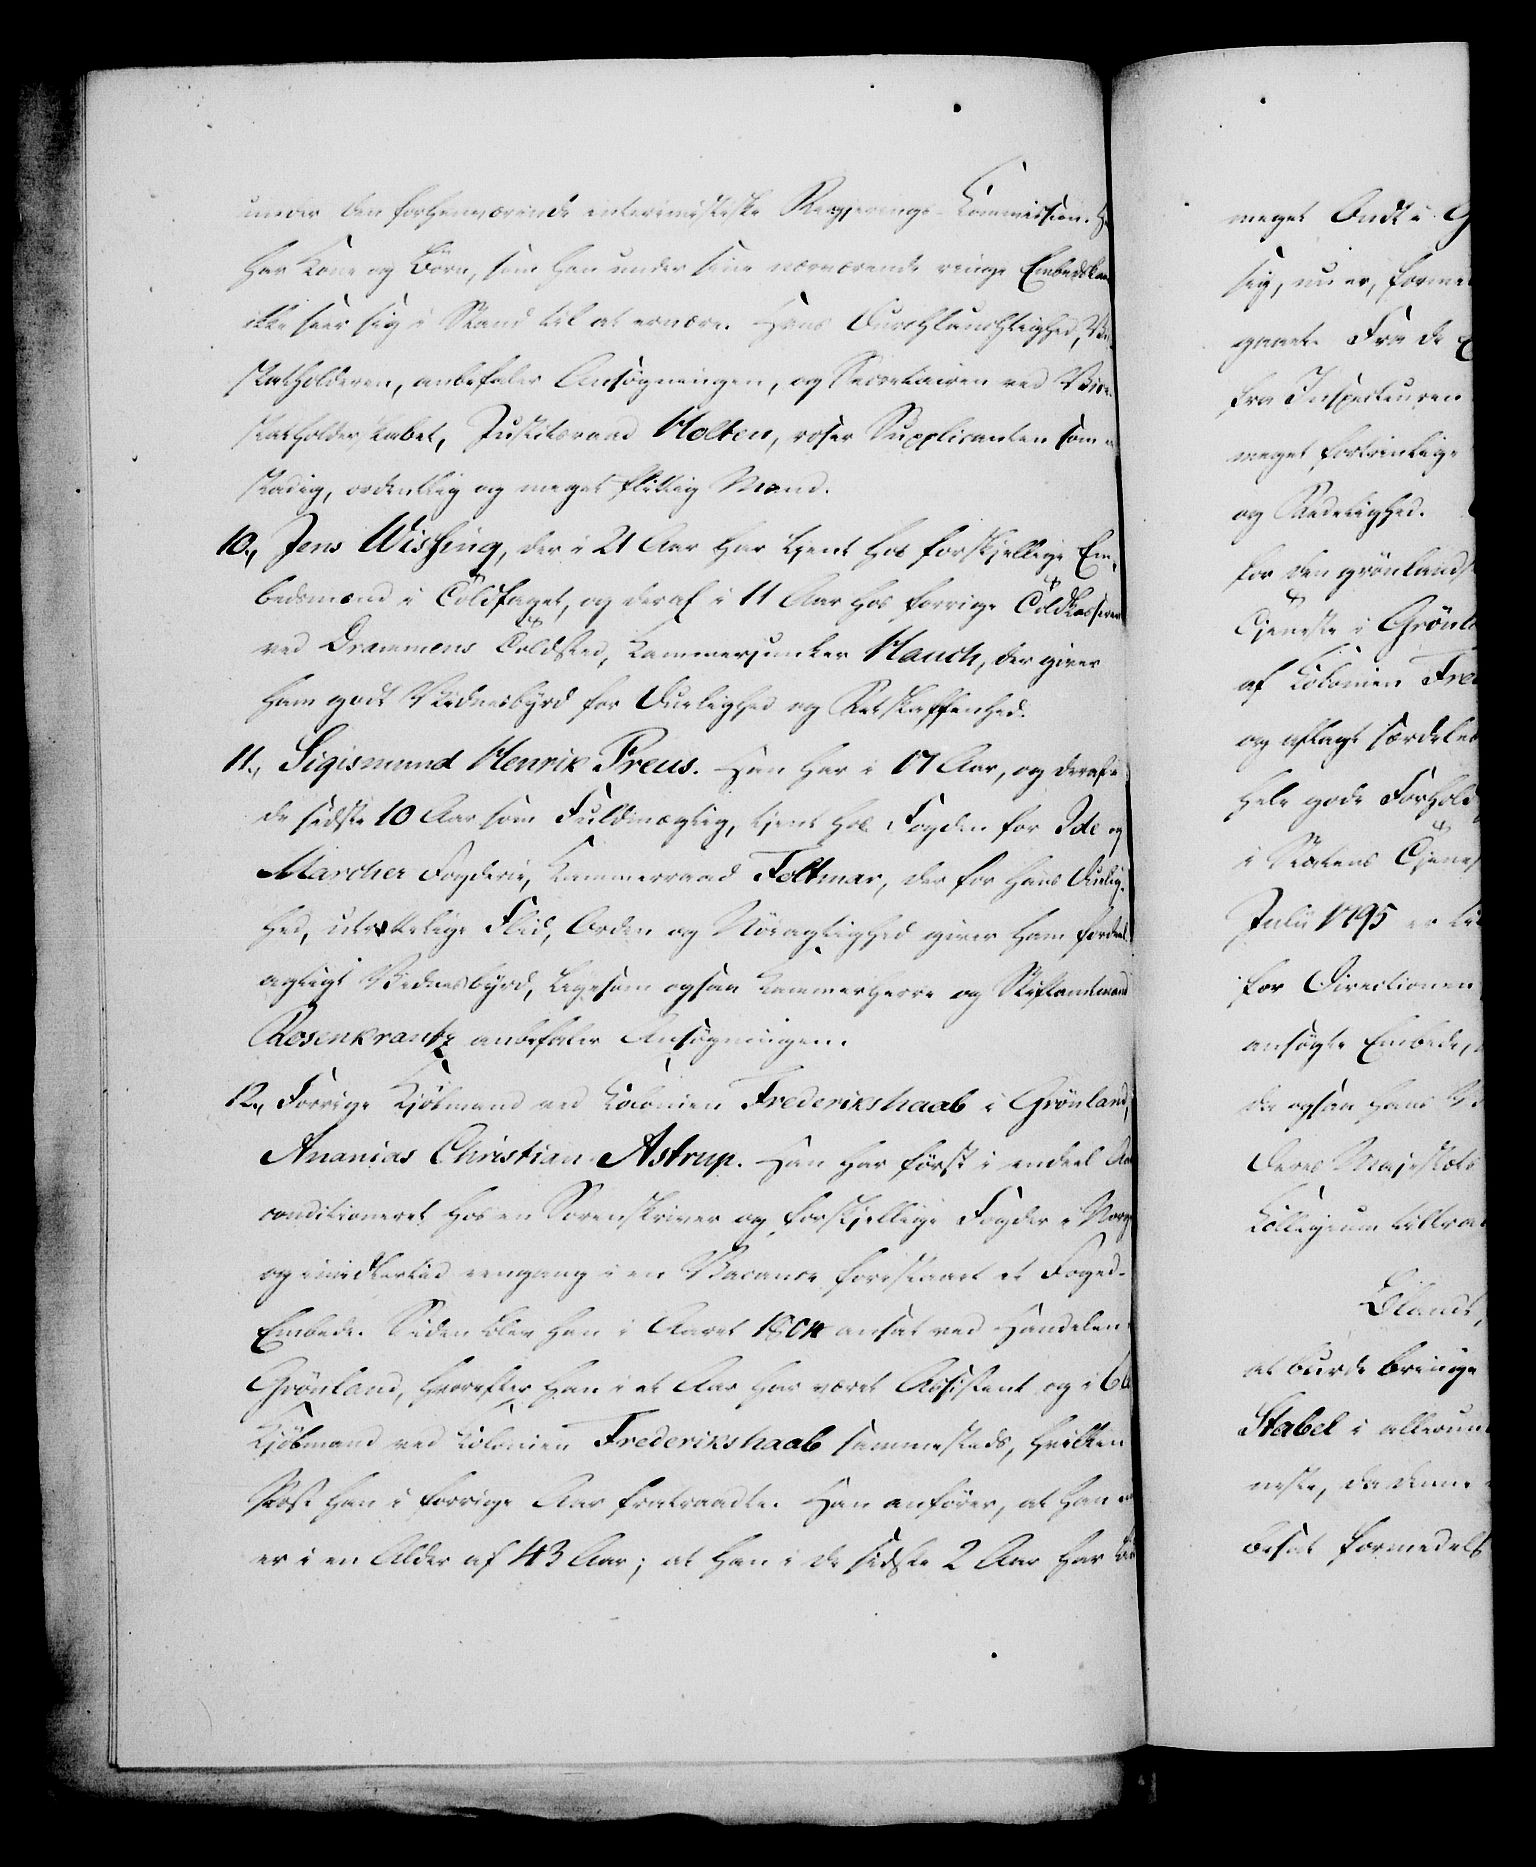 under den forhenværende interimistiske Regjerings-Kommission. H
har Kone og Börn, som han under sine nærværende ringe Embeds
ikke seer sig i Stand til at ernære. Hans Durchlauchtighed, Vi
statholderen, anbefaler Ansögningen, og Secretairen ved Vice-
statholderskabet, Justitsraad Holten, roser Supplicanten som
stadig, ordentlig og meget flittig Mand.
10., Jens Wissing, der i 21 Aar har tjent hos forskjellige Em-
bedsmænd i Toldfaget, og deraf i 11 Aar hos forrige Toldkasserer
ved Drammens Toldsted, Kammerjunker Hauch, der giver
ham godt Vidnesbyrd for Duelighed og Retskaffenhed.
11., Sigismund Henrik Preus. Han har i 17 Aar, og deraf i
de sidste 10 Aar som Fuldmægtig, tjent hos Fogden for Ide og
Marcher Fogderie, Kammerraad Feltmar, der for hans Duelig-
hed, utrættelige Flid, Orden og Nöiagtighed giver ham fordeel-
agtigt Vidnesbyrd, ligesom ogsaa Kammerherre og Stiftamtmand
Rosenkrantz anbefaler Ansögningen.
12., Forrige Kjöbmand ved Kolonien Frederikshaab i Grönland,
Ananias Christian Astrup. Han har först i endeel Aar
conditioneret hos en Sorenskriver og forskjellige Fogder i Norge
og imidlertid eengang i en Vacance forestaaet et Foged-
Embede. Siden blev han i Aaret 1804 ansat ved Handelen
Grönland, hvorefter han i et Aar har været Assistent og i 6
Kjöbmand ved Kolonien Frederikshaab sammesteds, hvilken
Post han i forrige Aar fratraadte. Han anförer, at han
er i en Alder af 43 Aar; at han i de sidste 2 Aar har
meget Ondt i G
sig, nu er, forme
gaaet. Fra de
fra Inspecteuren
meget fortrinlige
og Sædelighed.
for den grönlands
Tjeneste i Grönl
af Kolonien Fred
og aflagt særdeles
hele gode Forhold
i Statens Tjenes
Julii 1795 er
for Directionen
ansögte Embede,
da ogsaa hans
Deres Majestæts
Kollegium tiltra
Blandt,
at burde bringe
Stabel i allerun
neste, da denne
besat formedelst